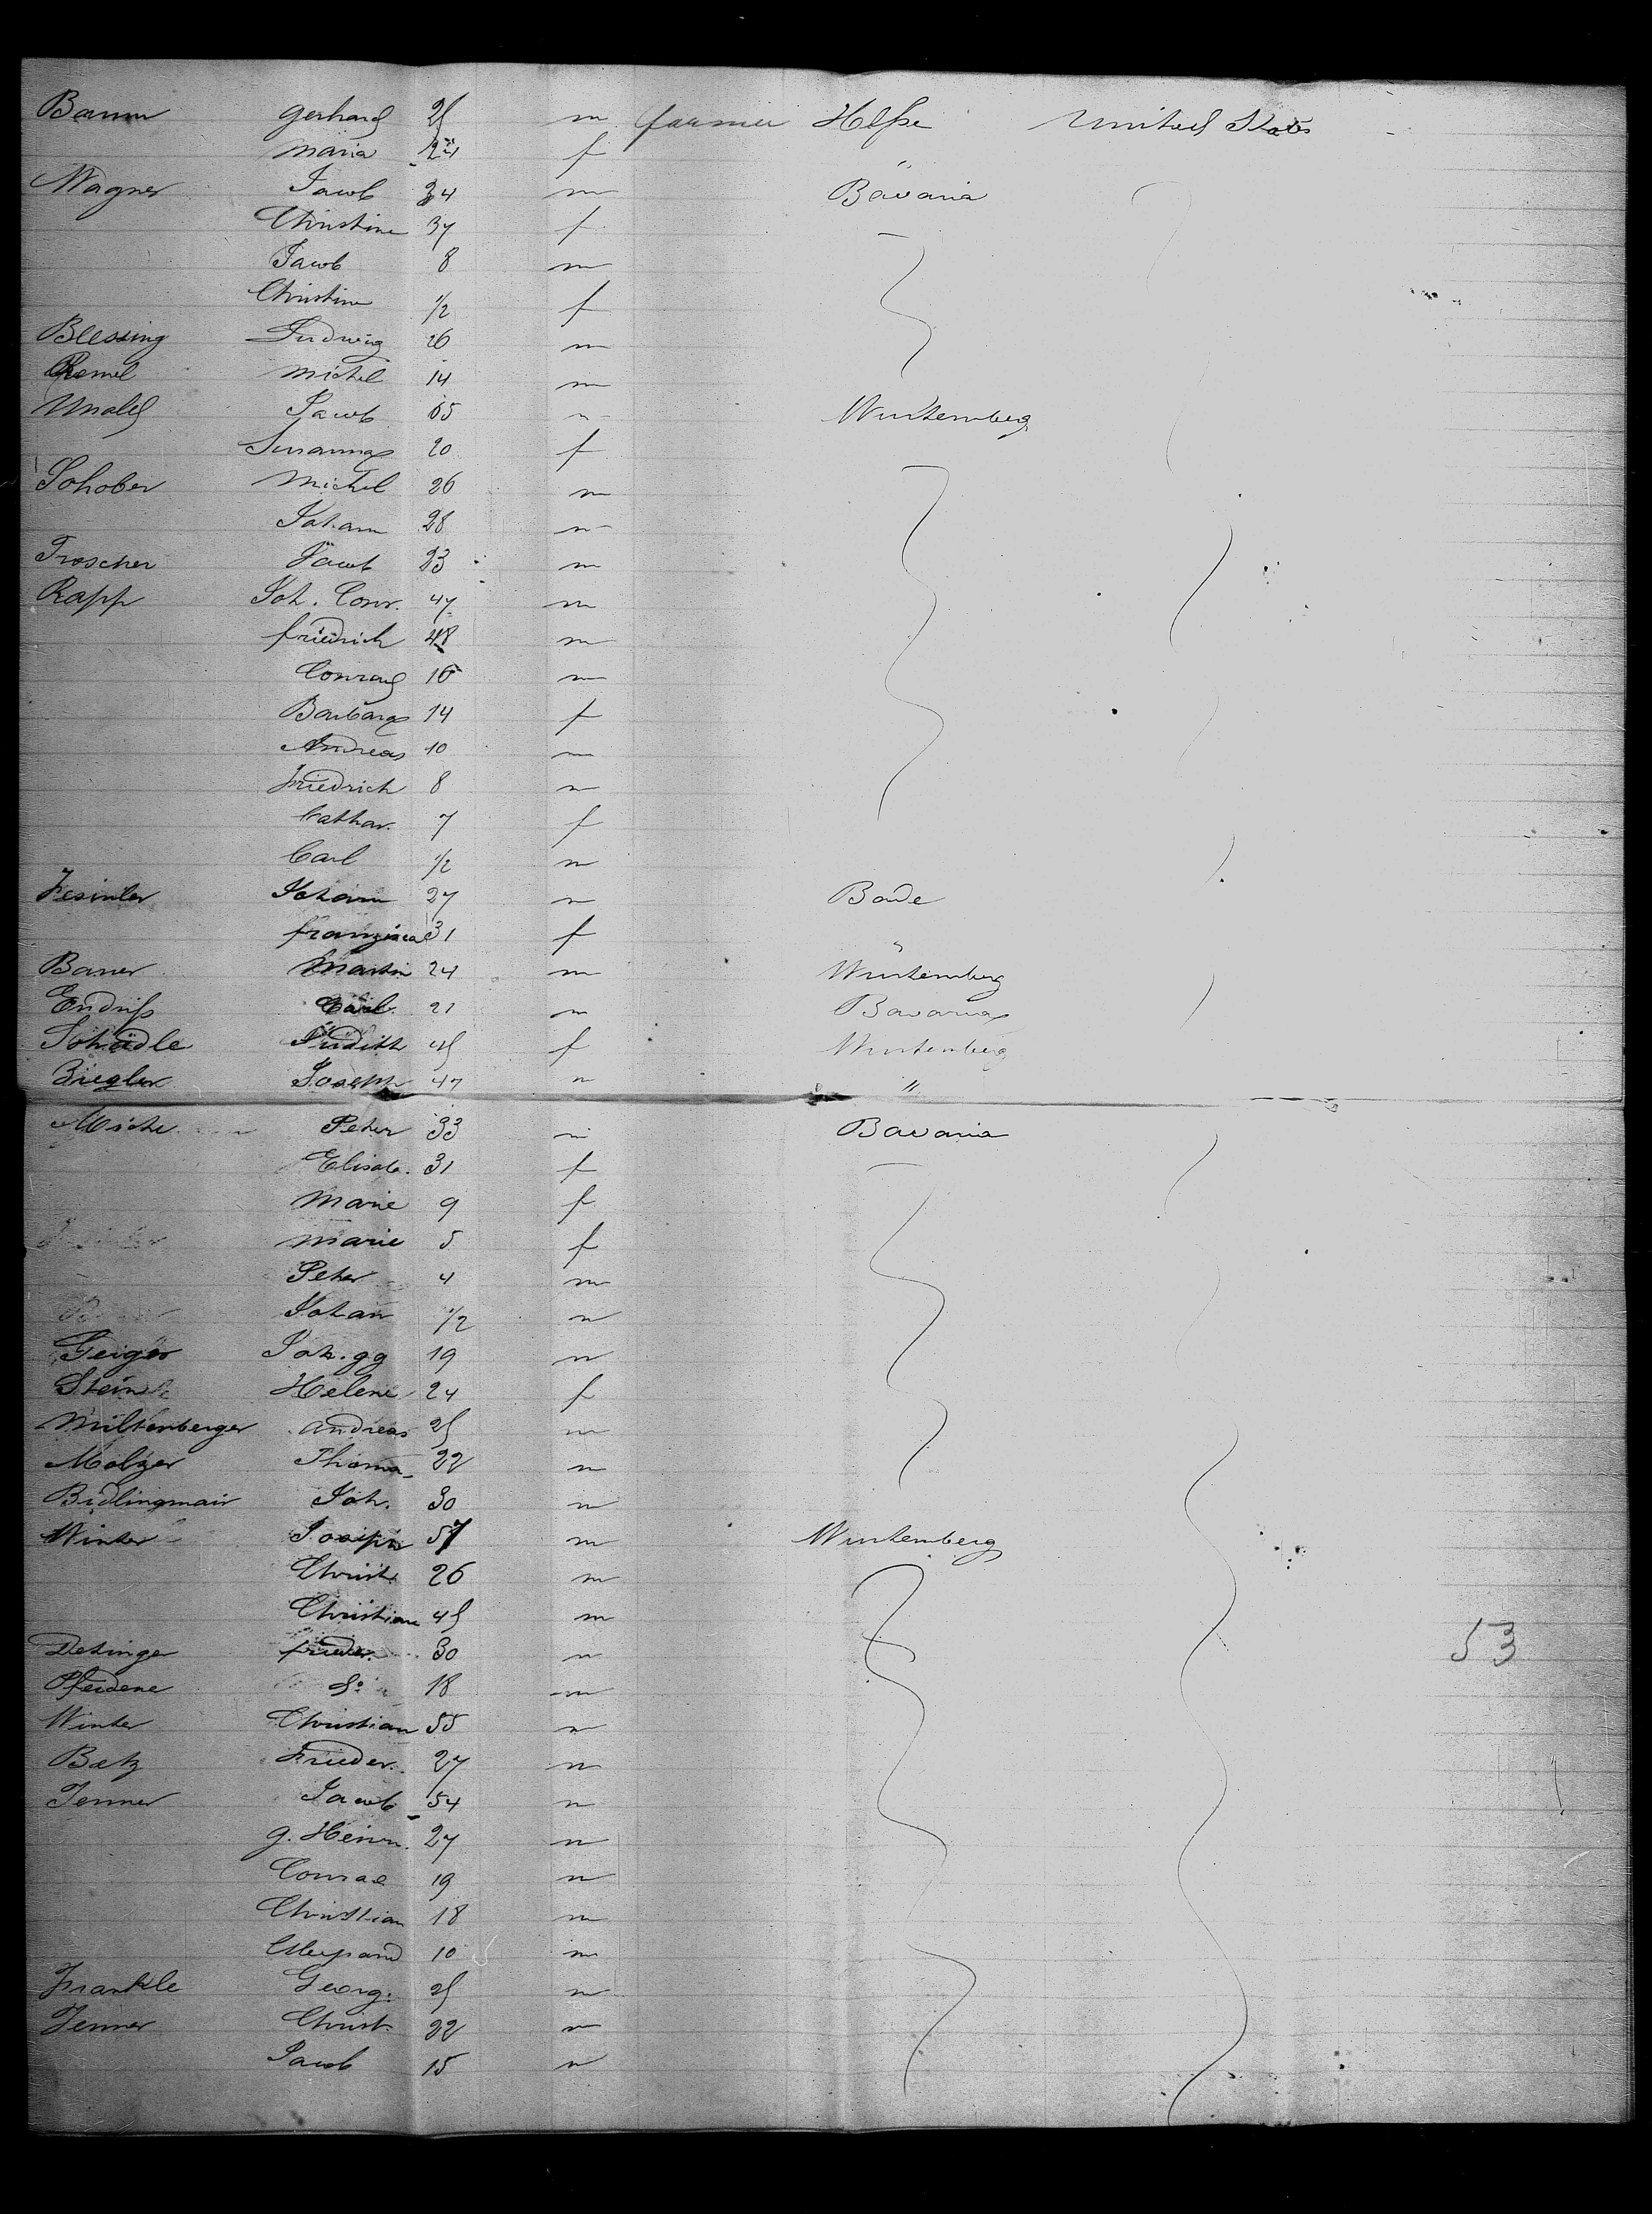 Baum Gerhard 25 m farmer Hesse United States
Maria 24 f "
Wagner Jacob 34 m Bavaria
Christine 37 f
Jacob 8 m
Christine 1/2 f
Blessing Ludwig 26 m
Michel 14 m
Jacob 65 m Wurtemberg
Susanna 20 f
Schober Michel 26 m
Johann 28 m
Troscher Jacob 23 m
Rapp Joh. Conr. 47 m
friedrich 48 m
Conrad 16 m
Barbara 14 f
Andreas 10 m
Friedrich 8 m
Cathar. 7 f
Carl 1/2 m
Johann 27 m Bade
franzisca 31 f "
Bauer Martin 24 m Würtemberg
Endriß Carl 21 m Bavaria
Schädle Judith 45 f Wurtemberg
Ziegler Joseph 47 m "
Peter 33 m Bavaria
Elisab. 31 f
Marie 9 f
Marie 5 f
Peter 4 m
Johan 1/2 m
Geiger Joh. gg 19 m
Helene 24 f
Miltenberger Andreas 25 m
Molzer Thoma 22 m
Bidlingmair Joh. 30 m
Winter Joseph 57 m Wurtemberg
Christ. 26 m
Christian 45 m
Detinger frieder. 30 m 53
Pfeidene do 18 m
Winter Christian 55 m
Betz Frieder. 27 m
Jenner Jacob 54 m
g. Heinr. 27 m
Conrad 19 m
Christian 18 m
10 m
Frankle Georg. 25 m
Jenner Christ. 22 m
Jacob 15 m